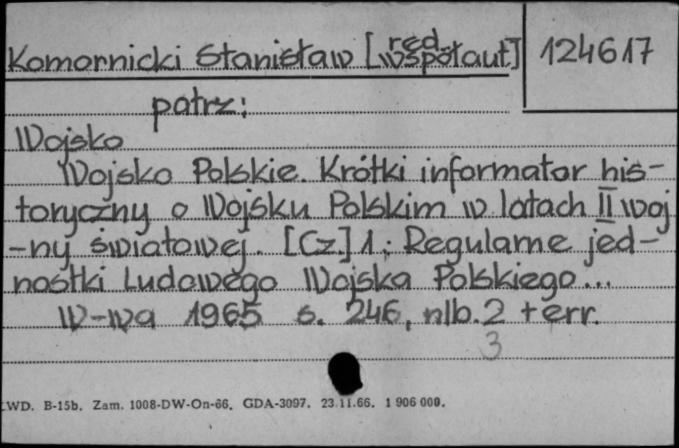 Komornicki Stanisław [red. współaut.] 124617
patrz:
Wojsko
Wojsko Polskie. Krótki informator his-
toryczny o Wojsku Polskim w latach II woj
-ny światowej. [Cz] 1: Regularne jed-
nostki Ludowego Wojska Polskiego...
W-wa 1965 s. 246, nlb. 2 + err.
3
LWD. B-15b. Zam. 1008-DW-On-66. GDA-3097. 23.11.66. 1 906 000.